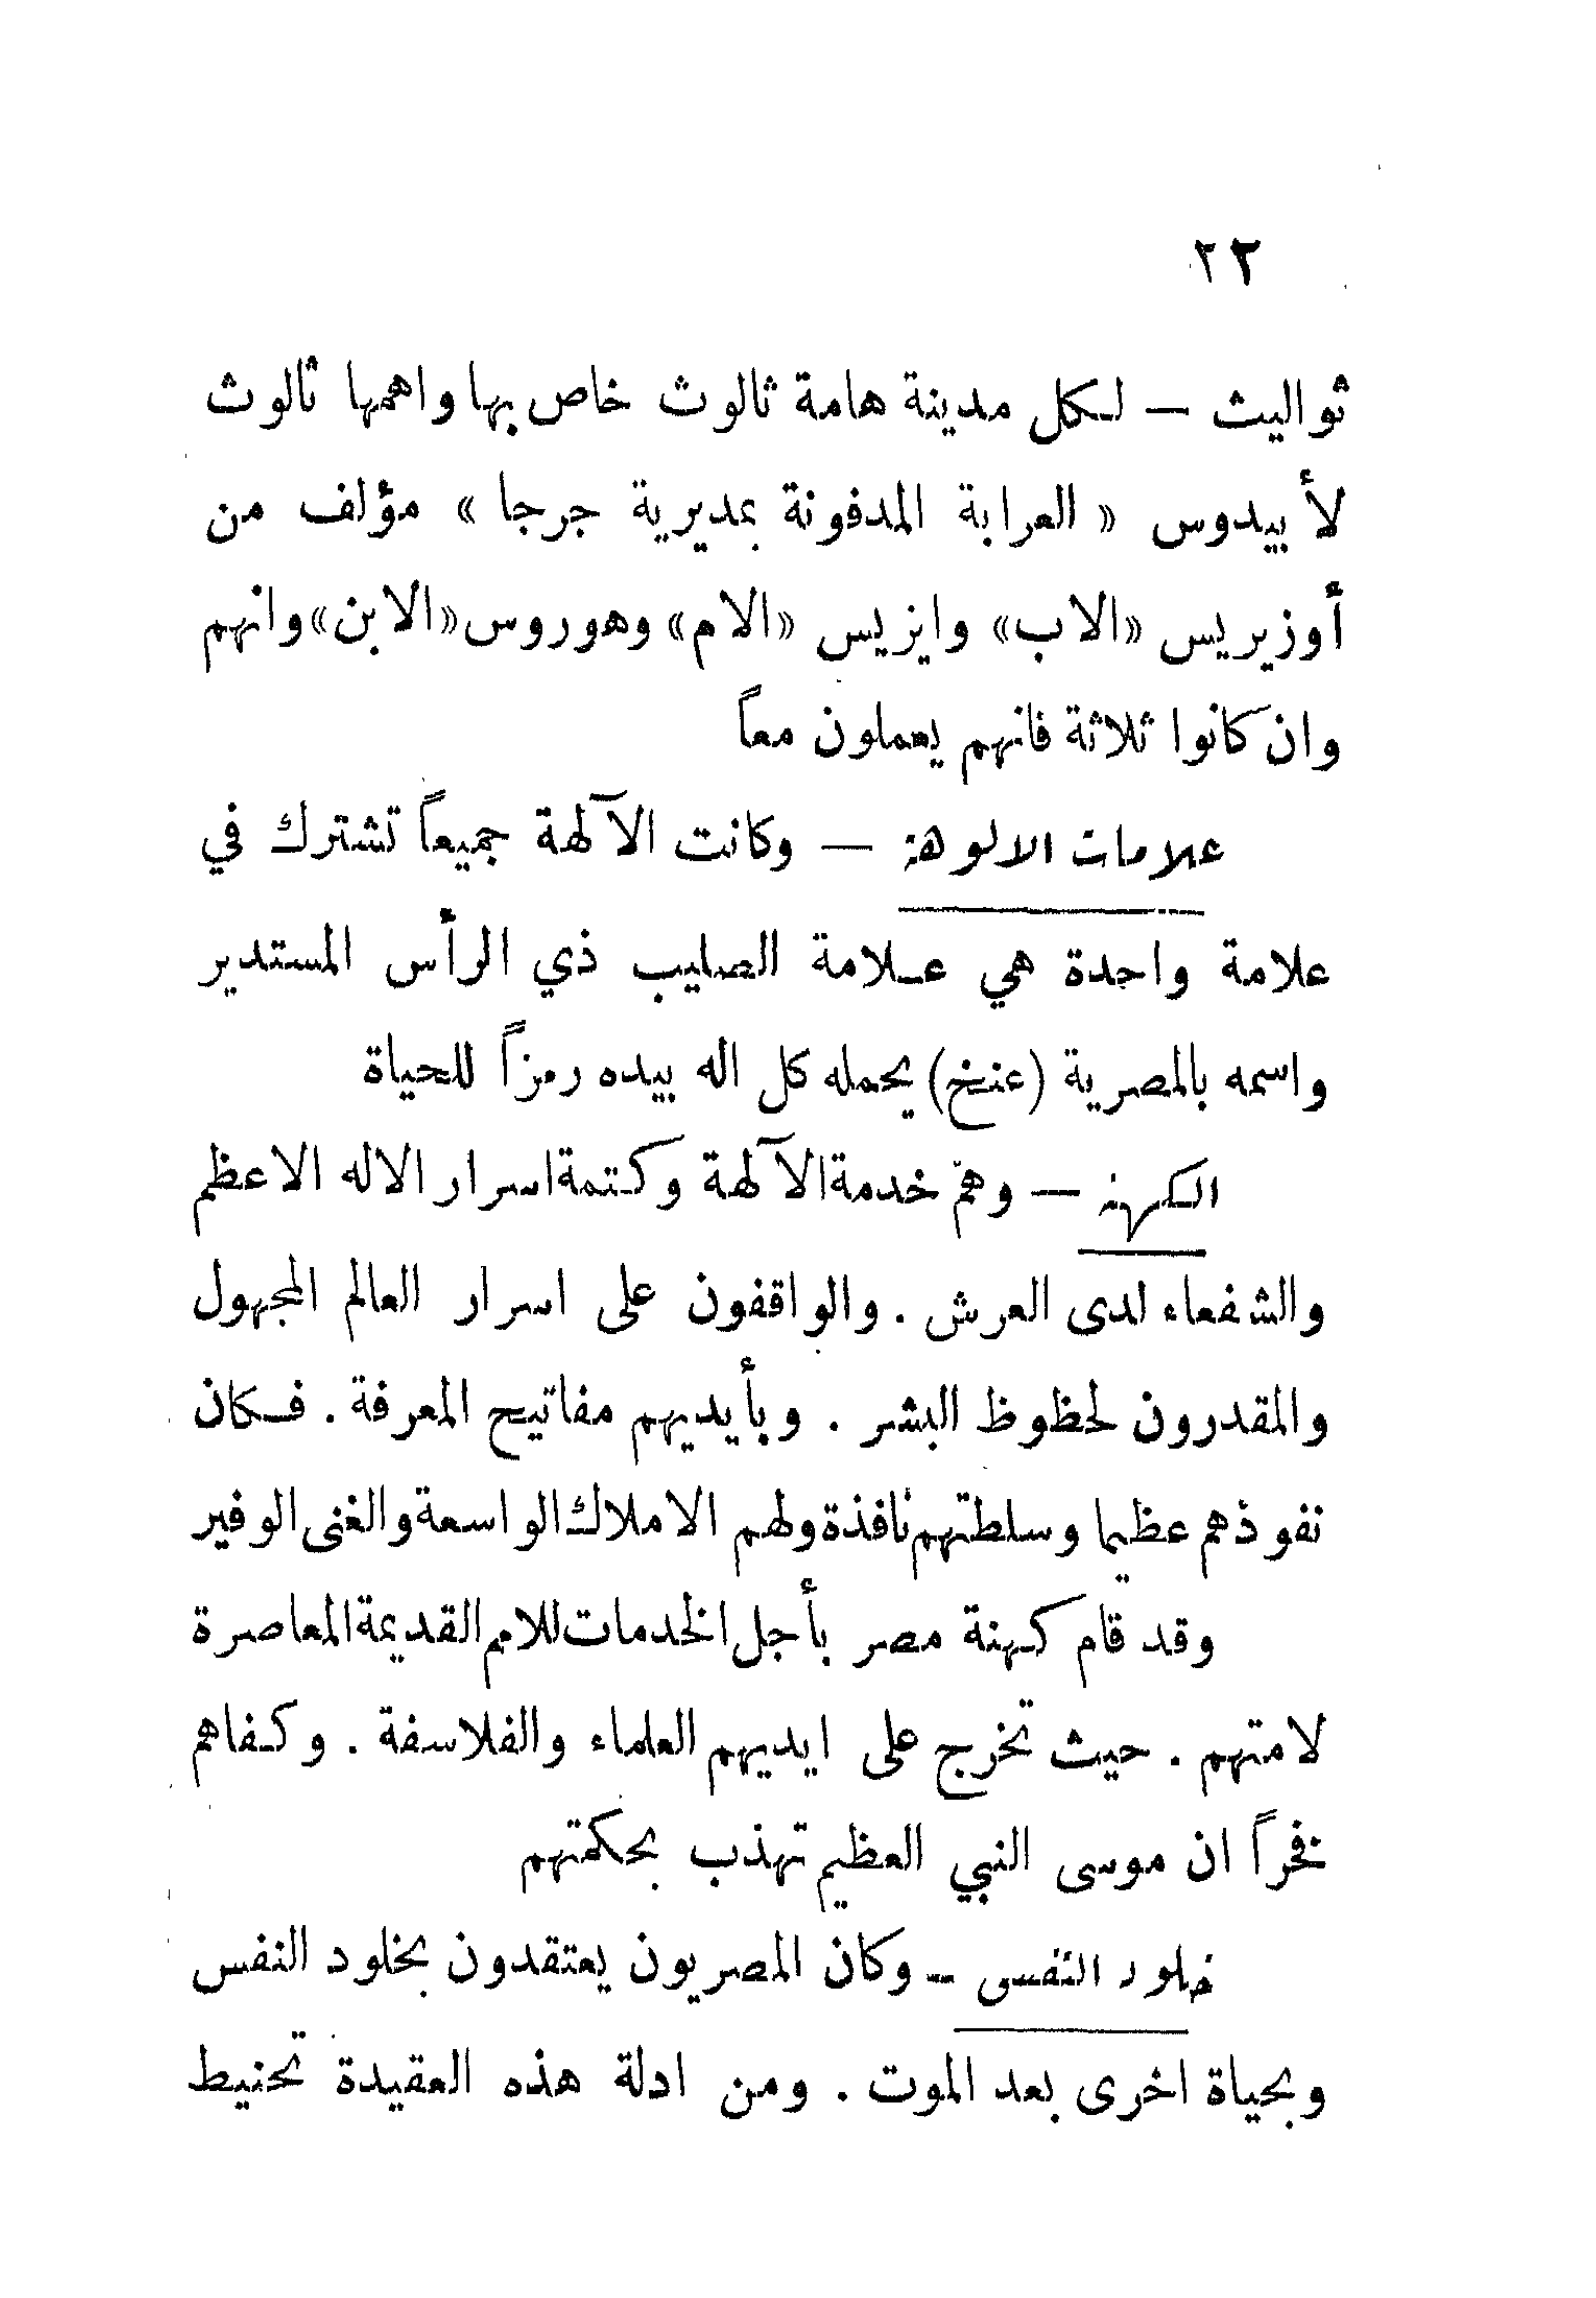 ٢٣
ثواليث — لكل مدينة هامة ثالوث خاص بها واهمها ثالوث
لأ بيدوس « العرابة المدفونة بمديرية جرجا » مؤلف من
أوزيريس «الاب» وايزيس «الام» وهوروس «الابن» وانهم
وان كانوا ثلاثة فانهم يعملون معاً
علامات الالوهة — وكانت الآلهة جميعاً تشترك في
علامة واحدة هي عـلامة الصليب ذي الرأس المستدير
واسمه بالمصرية (عنخ) يحمله كل اله بيده رمزاً للحياة
الكهنة — وهم خدمة الآلهة وكتمة اسرار الاله الاعظم
والشفعاء لدى العرش . والواقفون على اسرار العالم المجهول
والمقدرون لحظوظ البشر . وبأيديهم مفاتيح المعرفة . فكان
نفوذهم عظيما وسلطتهم نافذة ولهم الاملاك الواسعة والغنى الوفير
وقد قام كهنة مصر بأجل الخدمات للامم القديمة المعاصرة
لامتهم . حيث تخرج على ايديهم العلماء والفلاسفة . وكفاهم
فخراً ان موسى النبي العظيم تهذب بحكمتهم
خلود النفس — وكان المصريون يعتقدون بخلود النفس
وبحياة اخرى بعد الموت . ومن ادلة هذه العقيدة تحنيط